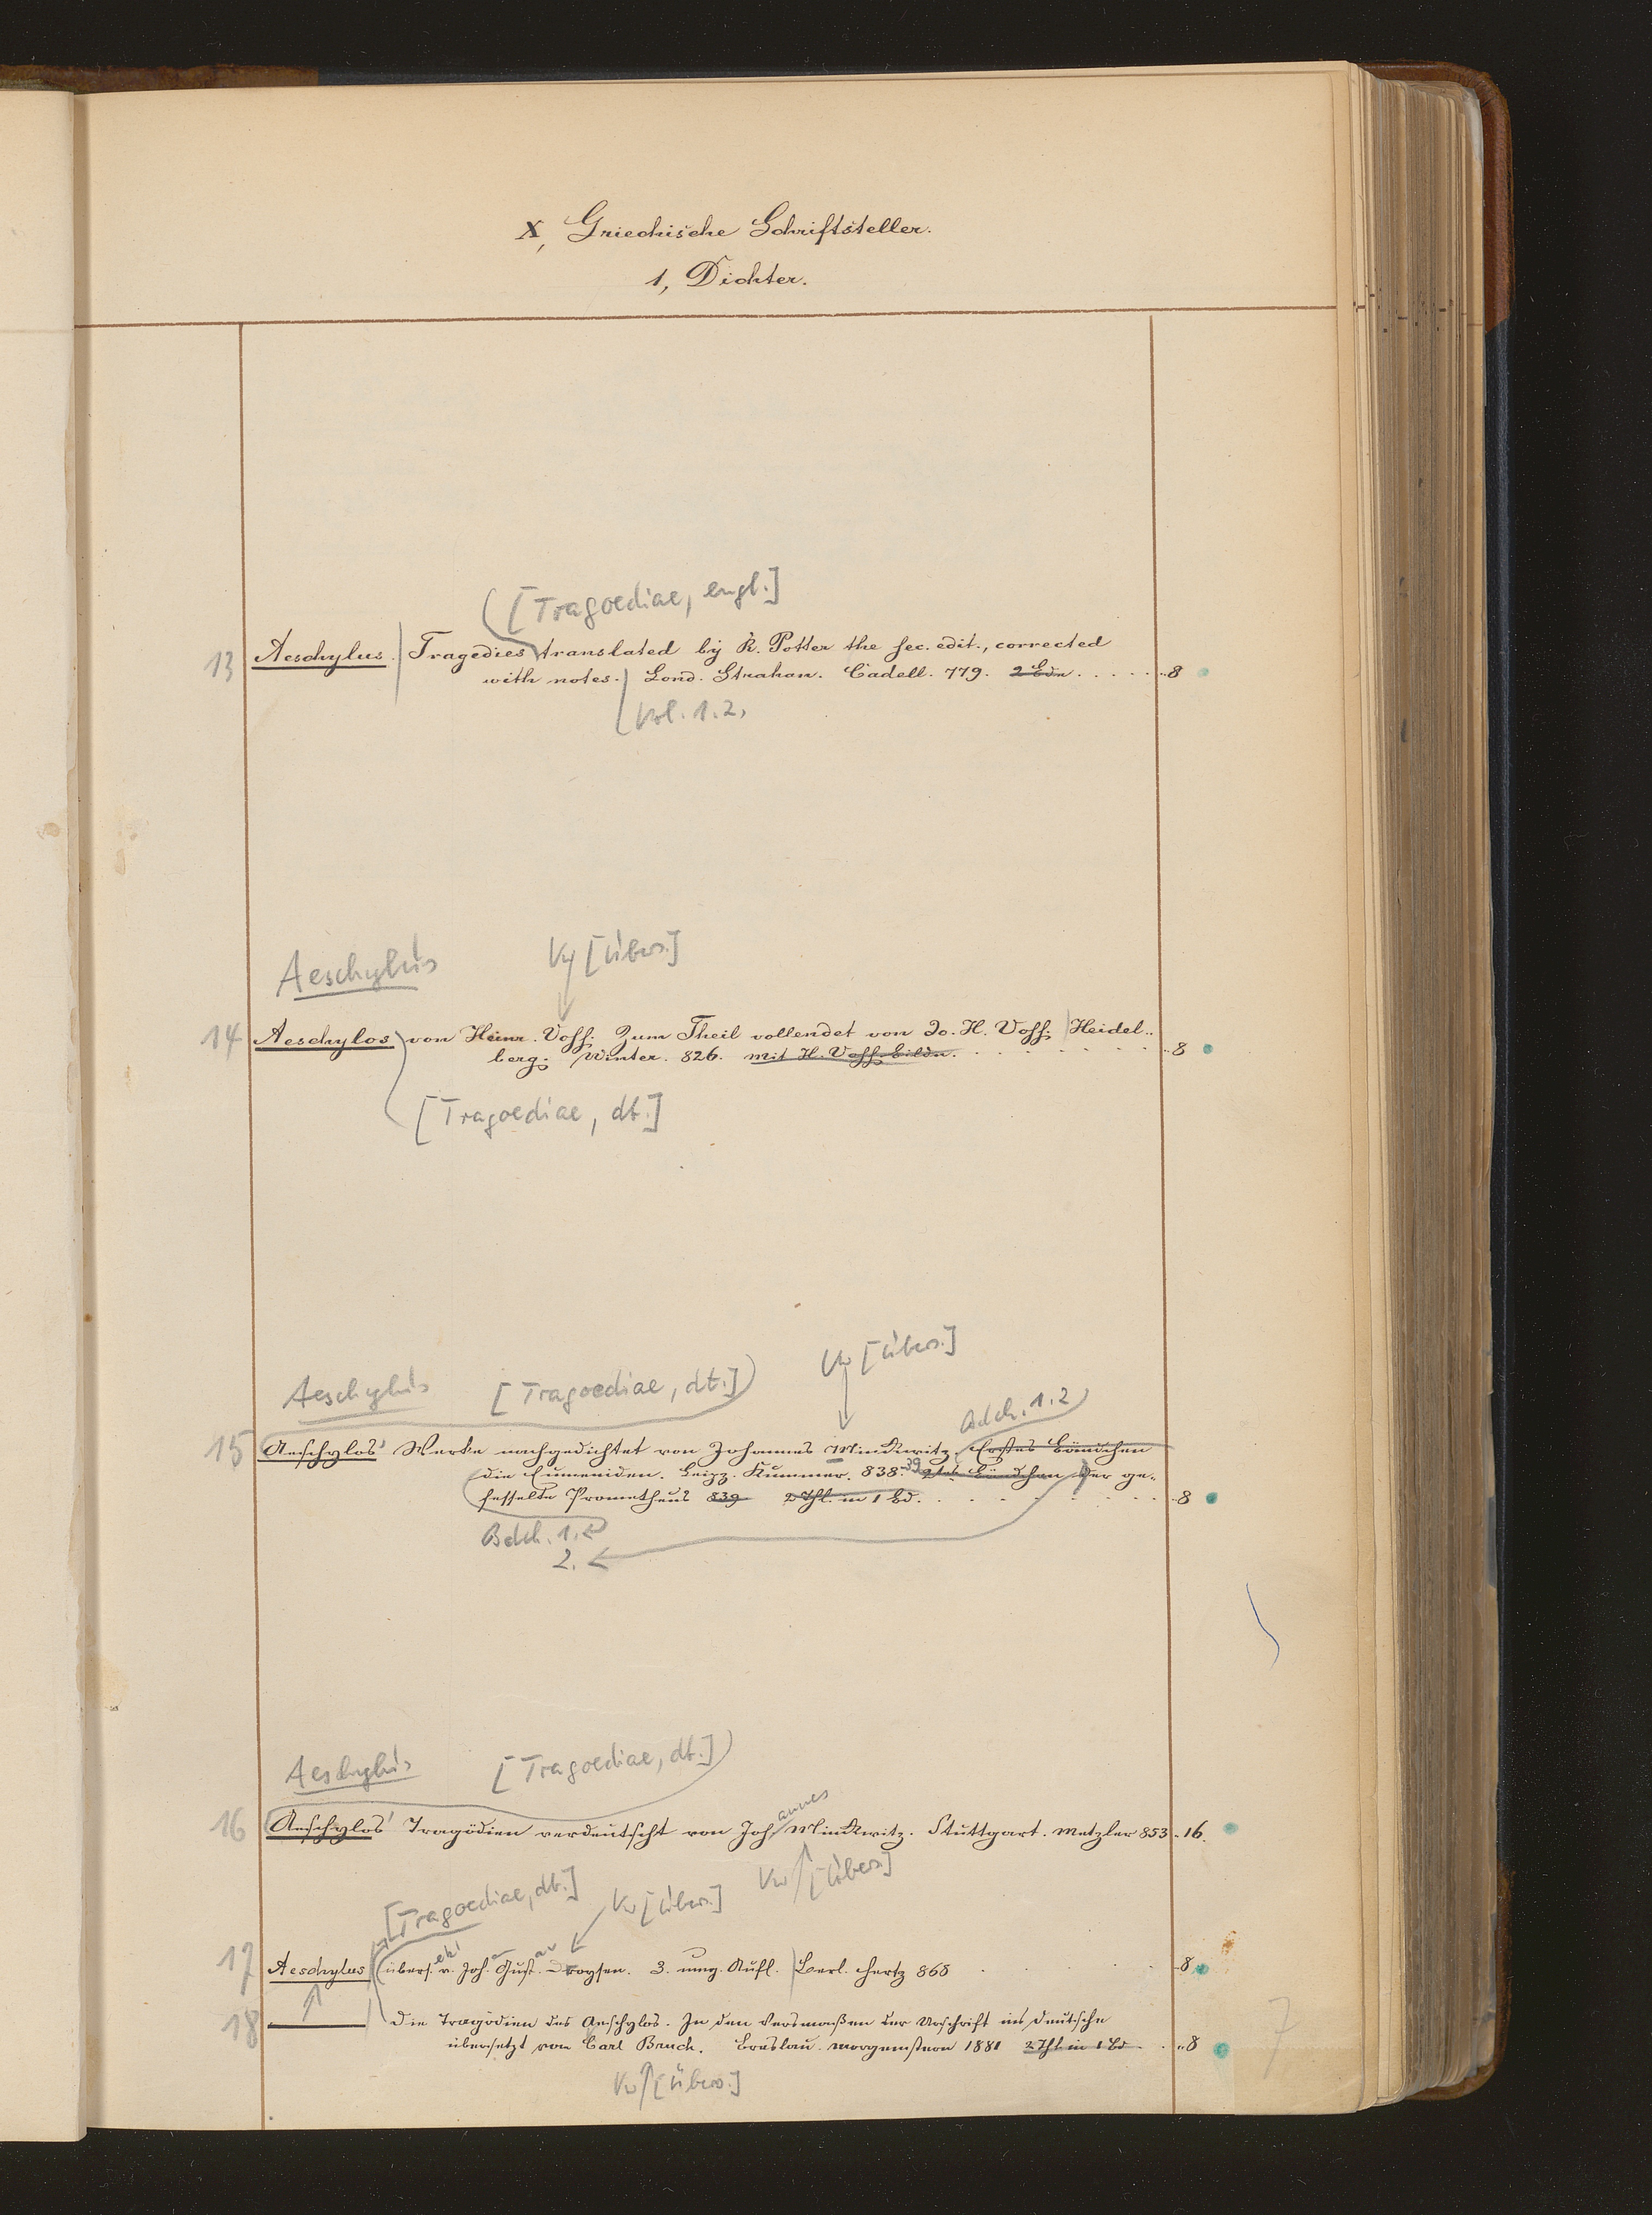 X, Griechische Schriftsteller.
1, Dichter.
[Tragoediae, engl.]
13 Aeschylus. Tragedies translated by R. Potter the sec. edit., corrected
with notes. Lond. Strahan. Cadell. 779. 2 Bde. . . . . . 8
Vol. 1.2.
Aeschylus Vw [Übers.]
14 Aeschylos von Heinr. Voss. Zum Theil vollendet von Jo. H. Voss. Heidel-
berg. Winter. 826. mit H. Voss. Bildn. . . . . . 8
[Tragoediae, dt.]
Vw [Übers.]
Aeschylus [Tragoediae, dt.]
Bdch. 1.2
15 Aeschylos' Werke nachgedichtet von Johannes Minckwitz. Erstes Bändchen
die Eumeniden. Leipz. Kummer. 838. 39 2tes Bändchen der ge-
fesselte Prometheus 839 2 Thl. in 1 Bd. . . . . . 8
Bdch. 1.
2.
Aeschylus [Tragoediae, dt.]
annes
16 Aeschylos' Tragödien verdeutscht von Joh. Minckwitz. Stuttgart. Metzler 853. 16.
Vw [Übers.]
[Tragoediae, dt.] Vw [Übers.]
17 Aeschylus übers. v. Joh. Gust. Droysen. 3. umg. Aufl. Berl. Hertz 868 . . . . 8
18 ——— Die Tragödien des Aeschylos. In den Versmaßen der Urschrift ins Deutsche
übersetzt von Carl Bruch. Breslau. Morgenstern 1881 2 Thl in 1 Bd . . 8
Vw [Übers.]
7